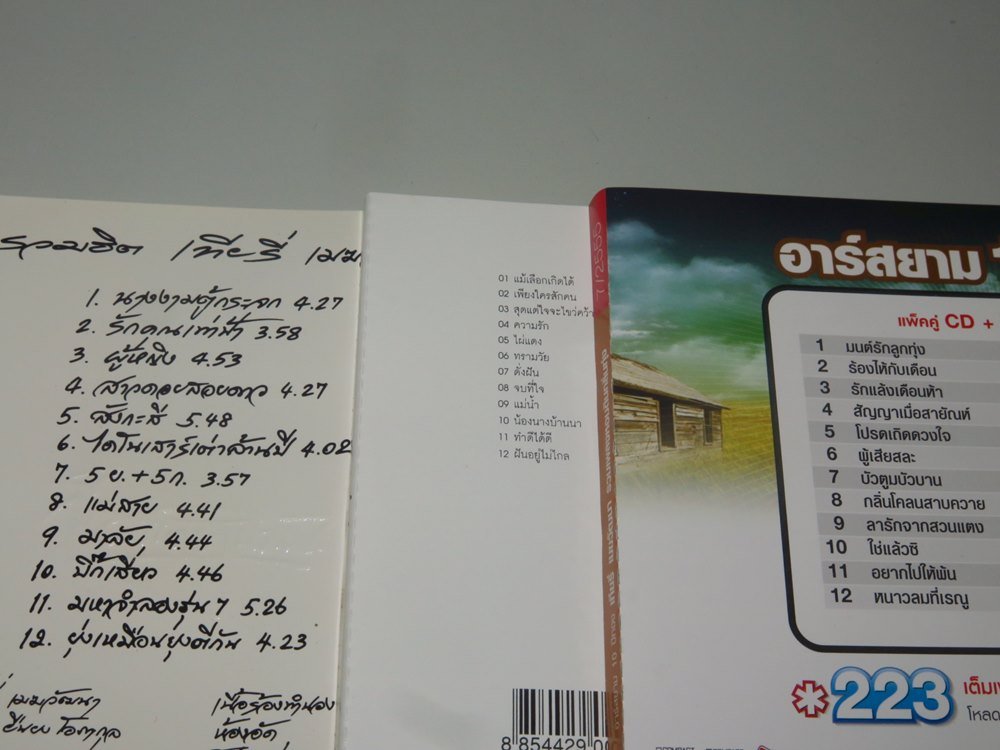 รวมฮิต เทียรี่ เมฆ
1. นางงามตู้กระจก 4.27
2. รักคุณเท่าฟ้า 3.58
3. ผู้หญิง 4.53
4. สาวดอยสอยดาว 4.27
5. สังกะสี 5.48
6. ไดโนเสาร์เต่าล้านปี 4.02
7. 5ย.+5ก. 3.57
8. แม่สาย 4.41
9. มาลัย 4.44
10. บิ๊กเสี่ยว 4.46
11. มหาจำลองรุ่น 7 5.26
12. ยุ่งเหมือนยุงตีกัน 4.23
เมฆวัฒนา
เนื้อร้องทำนอง
ห้องอัด
01 แม้เลือกเกิดได้
02 เพียงใครสักคน
03 สุดแต่ใจจะไขว่คว้า
04 ความรัก
05 ไผ่แดง
06 ทรามวัย
07 ดั่งฝัน
08 จบที่ใจ
09 แม่น้ำ
10 น้องนางบ้านนา
11 ทำดีได้ดี
12 ฝันอยู่ไม่ไกล
8 854429 00
7/2555
อาร์สยาม
แพ็คคู่ CD +
1 มนต์รักลูกทุ่ง
2 ร้องไห้กับเดือน
3 รักแล้งเดือนห้า
4 สัญญาเมื่อสายัณห์
5 โปรดเถิดดวงใจ
6 ผู้เสียสละ
7 บัวตูมบัวบาน
8 กลิ่นโคลนสาบควาย
9 ลารักจากสวนแตง
10 ใช่แล้วซิ
11 อยากไปให้พ้น
12 หนาวลมที่เรณู
*223 เต็มเ
โหลด